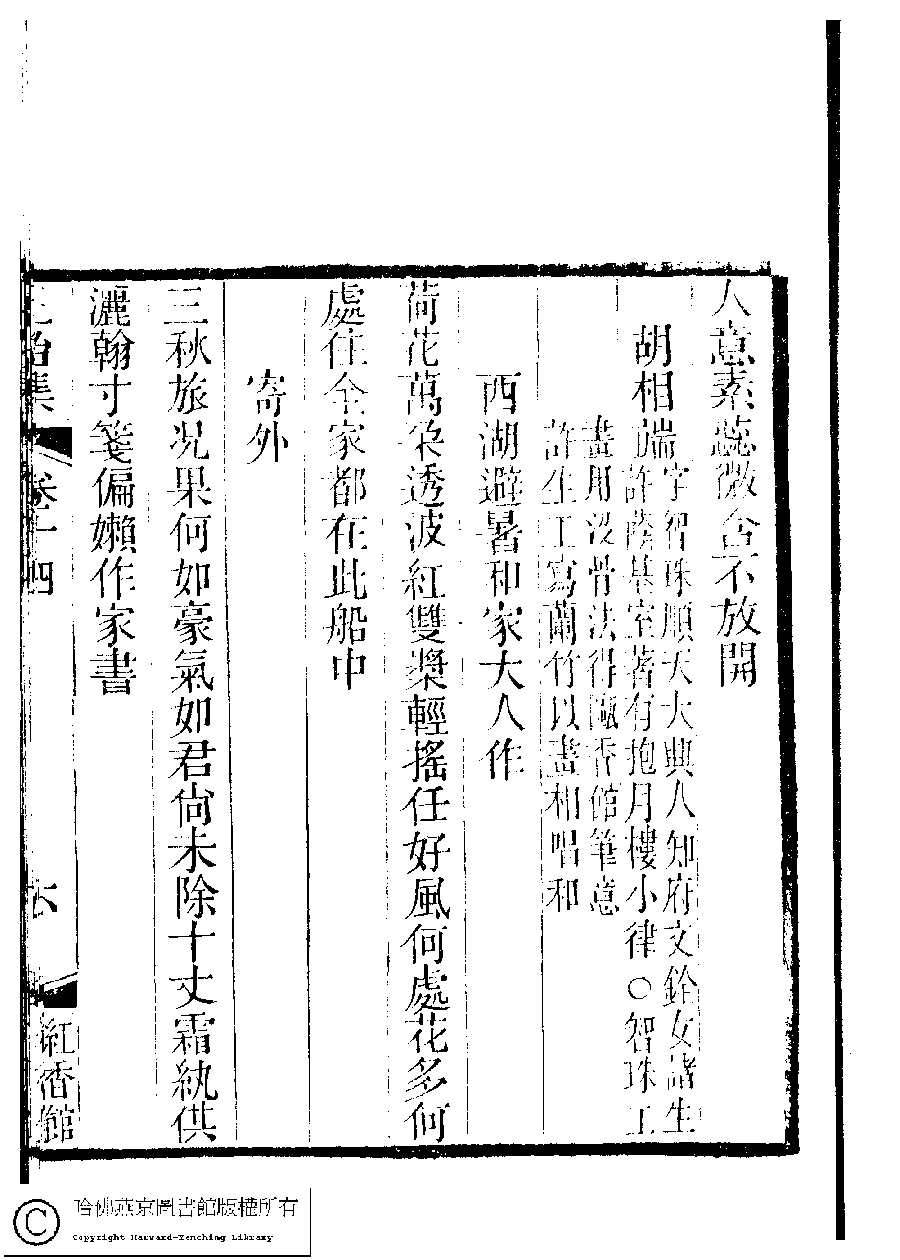 人意素蕊微含不放開
胡相端字智珠順天大興人知府文銓女諸生
許蔭基室著有抱月樓小律○智珠工
畫用沒骨法得甌香館筆意
許生工寫蘭竹以畫相唱和
西湖避暑和家大人作
荷花萬朶透波紅雙槳輕搖任好風何處花多何
處住全家都在此船中
寄外
三秋旅况果何如豪氣如君尙未除十丈霜紈供
灑翰寸箋偏嬾作家書
始集 卷十四 六 紅香館
哈佛燕京圖書館版權所有
Copyright Harvard-Yenching Library